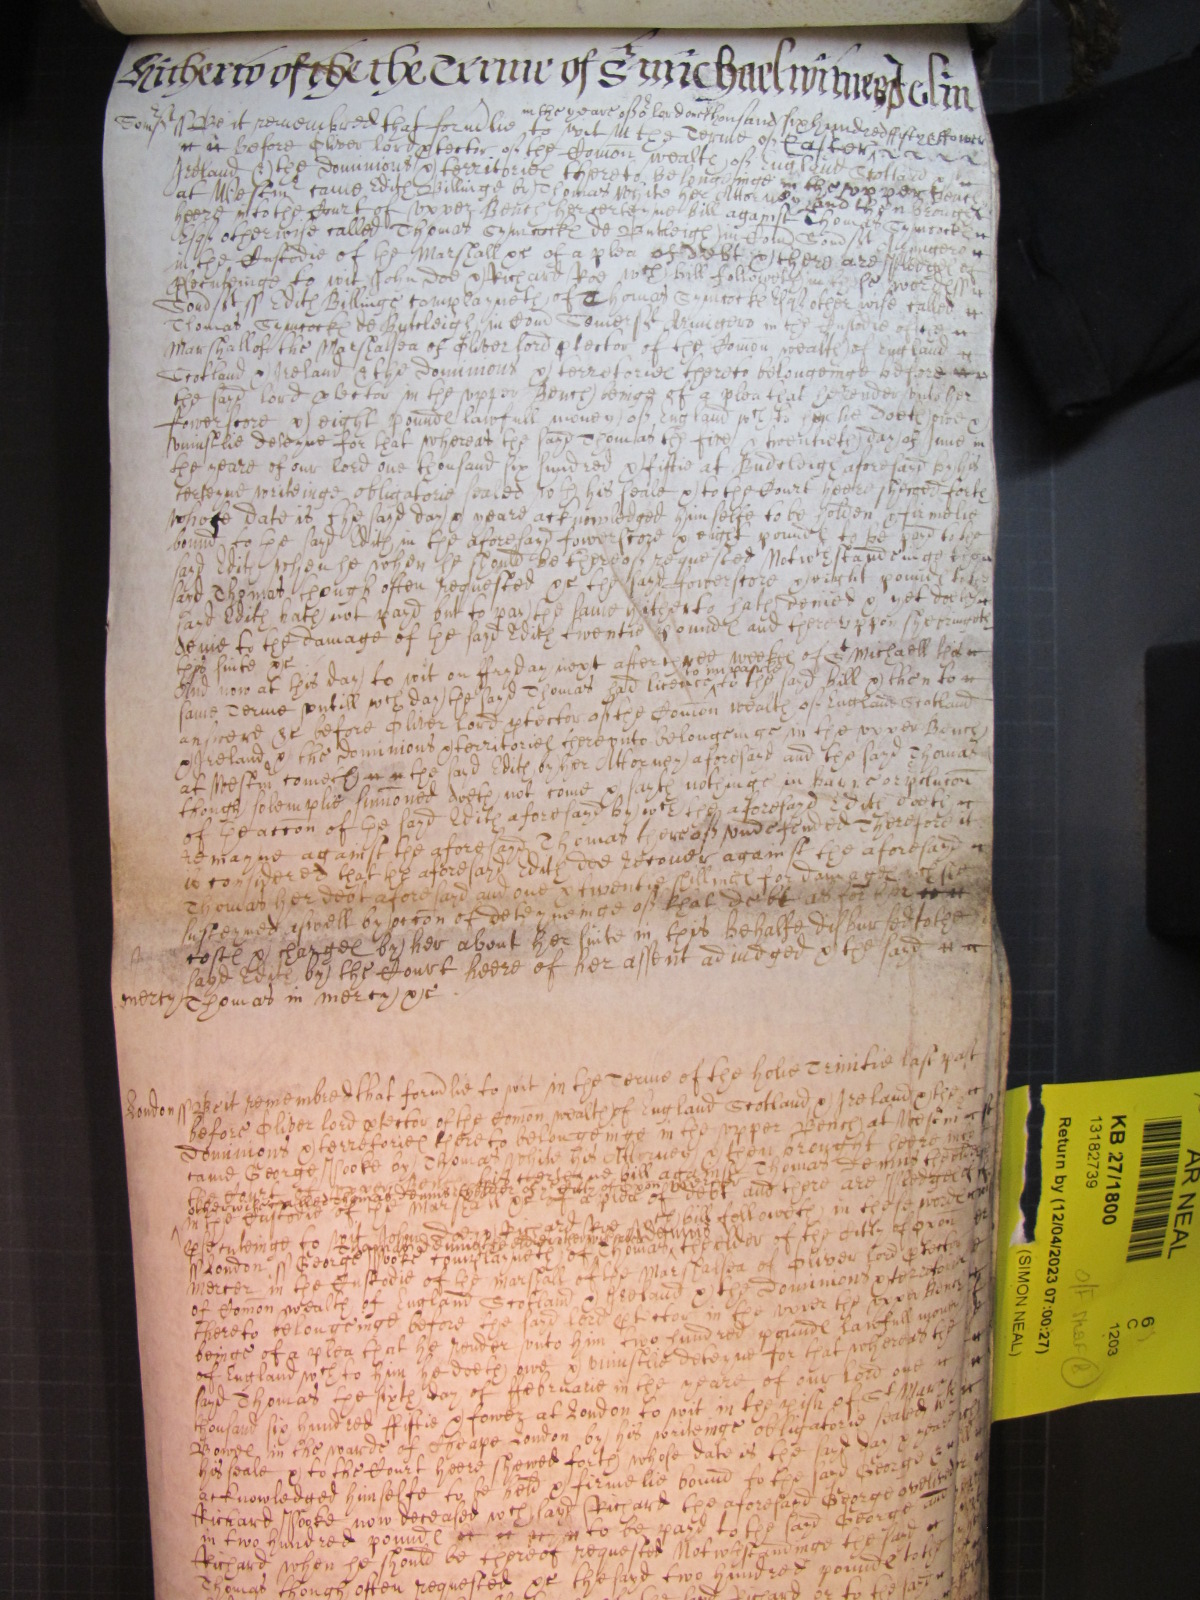 Hitherto of the the Terme of St Michael witnes John
in the yeare of o lord one thousand six hundred fifty & fower
Somst ss Be it remembred that formlie to wit in the Terme of Easter
before Oliver lord ptector of the Comon wealth of England Scotland &
Ireland & the dominions & territories thereto belonginge in the upper Bench
at Westm came Edith Billinge by Thomas White her Attorney and then brought
heere into the Court of upper Bench her certeyne bill against Thomas Symcocke
Esqr otherwise called Thomas Symcocke de Butleigh in Com Somst Armigero
in the Custodie of the Marshall &c of a plea of debt & there are pledges of
psecuteinge to wit John Doe & Richard Roe wch bill followeth in these words ss
Somst ss Edith Billinge complayneth of Thomas Symcocke Esqr otherwise called
Thomas Symcocke de Butcleigh in Com Somerst Armigero in the Custodie of the
Marshall of the Marshalsea of Oliver lord ptector of the Comon wealth of England
Scotland & Ireland & the dominions & territories thereto belongeinge before
the said lord ptector in the upper Bench beinge of a plea that he render unto her
fowerscore & eight pounds lawfull money of England wch to her he doeth owe &
uniustlie deteyne for that whereas the sayd Thomas the five & twentieth day of June in
the yeare of our lord one thousand six hundred & fiftie at Butcleigh aforesayd by his
certeyne writeinge obligatorie sealed with his seale & to the Court heere shewed forth
whose date is the sayd day & yeare acknowledged himselfe to be holden & firmelie
bound to the sayd Edith in the aforesayd fowerscore & eight pounds to be payd to the
sayd Edith when he should be thereof requested Notwithstandinge the
sayd Thomas though often requested &c the sayd fowerscore & eight pounds to the
sayd Edith hath not payd but to pay the same hitherto hath denied & yet doeth
denie to the damage of the sayd Edith twentie pounds and thereuppon shee bringeth
this suite &c
And now at this day to wit on ffryday next after three weekes of St Michaell this
same Terme untill wch day the sayd Thomas had licence to imparle to the sayd bill & then to
answere &c before Oliver lord ptector of the Comon wealth of England Scotland
& Ireland & the dominions & territories thereunto belongeinge in the upper Bench
at Westm cometh the sayd Edith by her Attorney aforesayd and the sayd Thomas
though solemplie sumoned doeth not come & sayth nothinge in barre or pclucon
of the accon of the sayd Edith aforesayd by wch the aforesayd Edith doeth
remayne against the aforesayd Thomas thereof undefended Therefore it
is considered that the aforesayd Edith doe recover against the aforesayd
Thomas her debt aforesayd and one & twentie shillings for damages wch shee
susteyned aswell by occon of deteyneinge of that debt as for her
costs & charges by her about her suite in this behalfe disbursed to the
sayd Edith by the Court heere of her assent adiudged & the sayd
mercy Thomas in mercy &c
London ss Be it remembred that formlie to wit in the Terme of the holie Trinitie last past
before Oliver lord ptector of the Comon wealth of England Scotland & Ireland & the
Dominions & territories thereto belongeinge in the upper Bench at Westm
came George Hooke by Thomas White his Attorney & then brought heere into
the Court his certeyne bill against Thomas Dennis
otherwise called Thomas Dennis
in the Custodie of the Marshall &c of a plea of debt and there are pledges of
psecuteinge to wit John Doe & Richard Roe wch bill followeth in these words
ss London ss George Hooke complayneth of Thomas the elder of the Citie of
mercer in the Custodie of the Marshall of the Marshalsea of Oliver lord ptector
of Comon wealth of England Scotland & Ireland & the Dominions & territories
thereto belongeinge before the sayd lord ptector in the upper the upper Bench
beinge of a plea that he render unto him two hundred pounds lawfull money
of England wch to him he doeth owe & uniustlie deteyne for that whereas the
sayd Thomas the sixth day of ffebruarie in the yeare of our lord one
thousand six hundred ffiftie & fower at London to wit in the pish of St Marie
Bowe in the warde of Cheape London by his writeinge obligatorie sealed wth
his seale & to the Court heere shewed forth whose date is the said day & yeare
acknowledged himselfe to be held & firmelie bound to the sayd George &
Richard Hooke now deceased wch sayd Richard the aforesayd George overlived
in two hundred pounds to be payd to the said George and
Richard when he should be thereof requested Notwthstandinge the sayd
Thomas though often requested &c the sayd two hundred pounds to the
AR NEAL
KB 27/1800
13182739
Return by (12/04/2023 07:00:27)
(SIMON NEAL)
6
C
1203